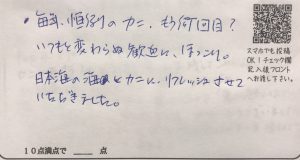 ・毎年、恒例のカニ、もう何回目?
いつもと変わらぬ歓迎に、ほっこり。
日本海の海風とカニに、リフレッシュさせて
いただきました。
スマホでも投稿
OK!チェック欄
記入後フロント
へお渡し下さい。
10点満点で 点